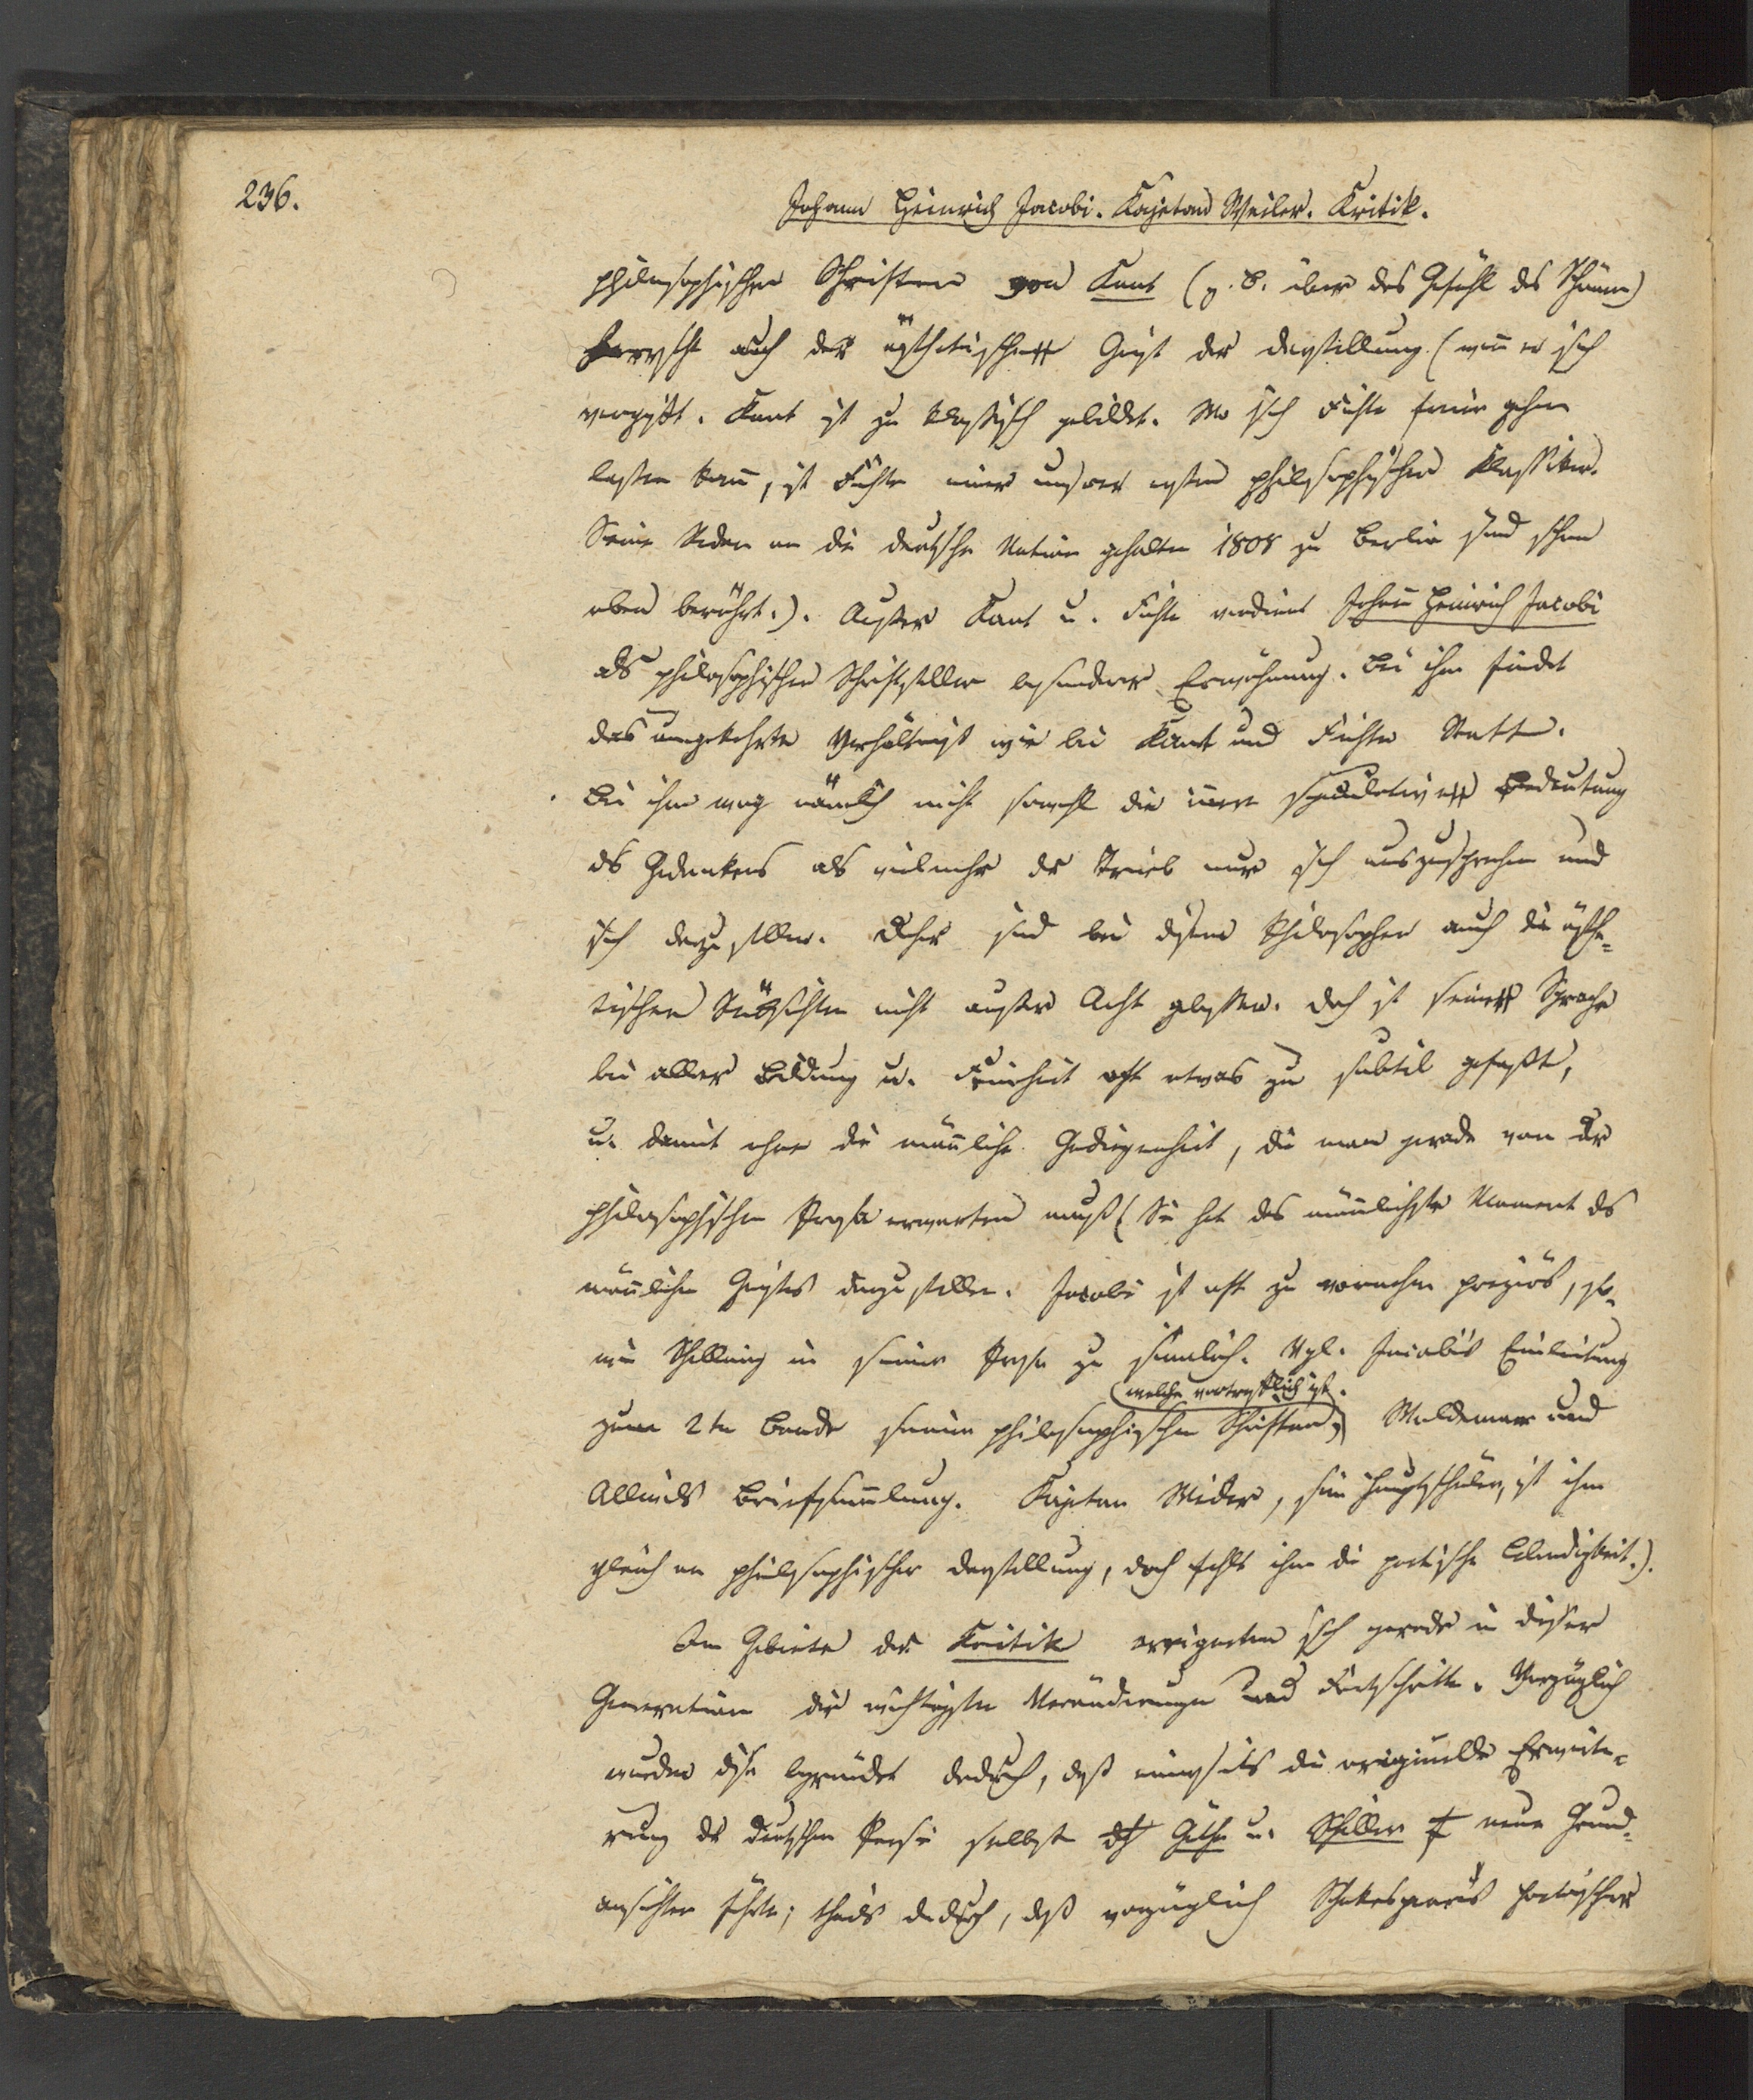 236.
Johann Heinrich Jacobi. Kajetan Weiler. Kritik.
philosophischen Schriften von Kant (z. B. über das Gefühl des Schönen)
herrscht auch der ästhetische Geist der Darstellung (weñ er sich
vergißt. Kant ist zu klassisch gebildet. Wo sich Fichte freier gehen
lassen kañ, ist Fichte einer unserer ersten philosophischen Klassiker.
Seine Reden an die deutsche Nation gehalten 1808 zu Berlin sind schon
oben berührt.). Außer Kant u. Fichte verdient Johañ Heinrich Jacobi
als philosophischer Schriftsteller besonderer Erwähnung. Bei ihm findet
das umgekehrte Verhältniß wie bei Kant und Fichte Statt.
Bei ihm wog nämlich nicht sowohl die iñere speculative Bedeutung
des Gedankens als vielmehr der Trieb nur sich auszusprechen und
sich darzustellen. Daher sind bei diesem Philosophen auch die ästhe-
tischen Rücksichten nicht außer Acht gelassen. Doch ist seine Sprache
bei aller Bildung u. Feinheit oft etwas zu subtil gefaßt,
u. damit ohne die mäñliche Gediegenheit, die man gerade von der
philosophischen Prosa erwarten muß (Sie hat das mäñlichste Moment des
mäñlichen Geistes darzustellen. Jacobi ist oft zu vornehm preziös, so-
wie Schelling in seiner Prosa zu siñlich. Vgl. Jacobi's Einleitung
(welche vortrefflich ist.
zum 2ten Bande seiner philosophischen Schriften,) Woldemar und
Allwills Briefsam̃lung. Kajetan Weiler, sein Hauptschüler, ist ihm
gleich an philosophischer Darstellung, doch fehlt ihm die poetische Lebendigkeit.).
Im Gebiete der Kritik ereigneten sich gerade in dieser
Generation die wichtigsten Veränderungen und Fortschritte. Vorzüglich
wurden diese begründet dadurch, daß einerseits die originelle Erweite-
rung der deutschen Poesie selbst dch Göthe u. Schiller neue Grund-
ansichten führte; theils dadurch, daß vorzüglich Shakespeare's poetischer